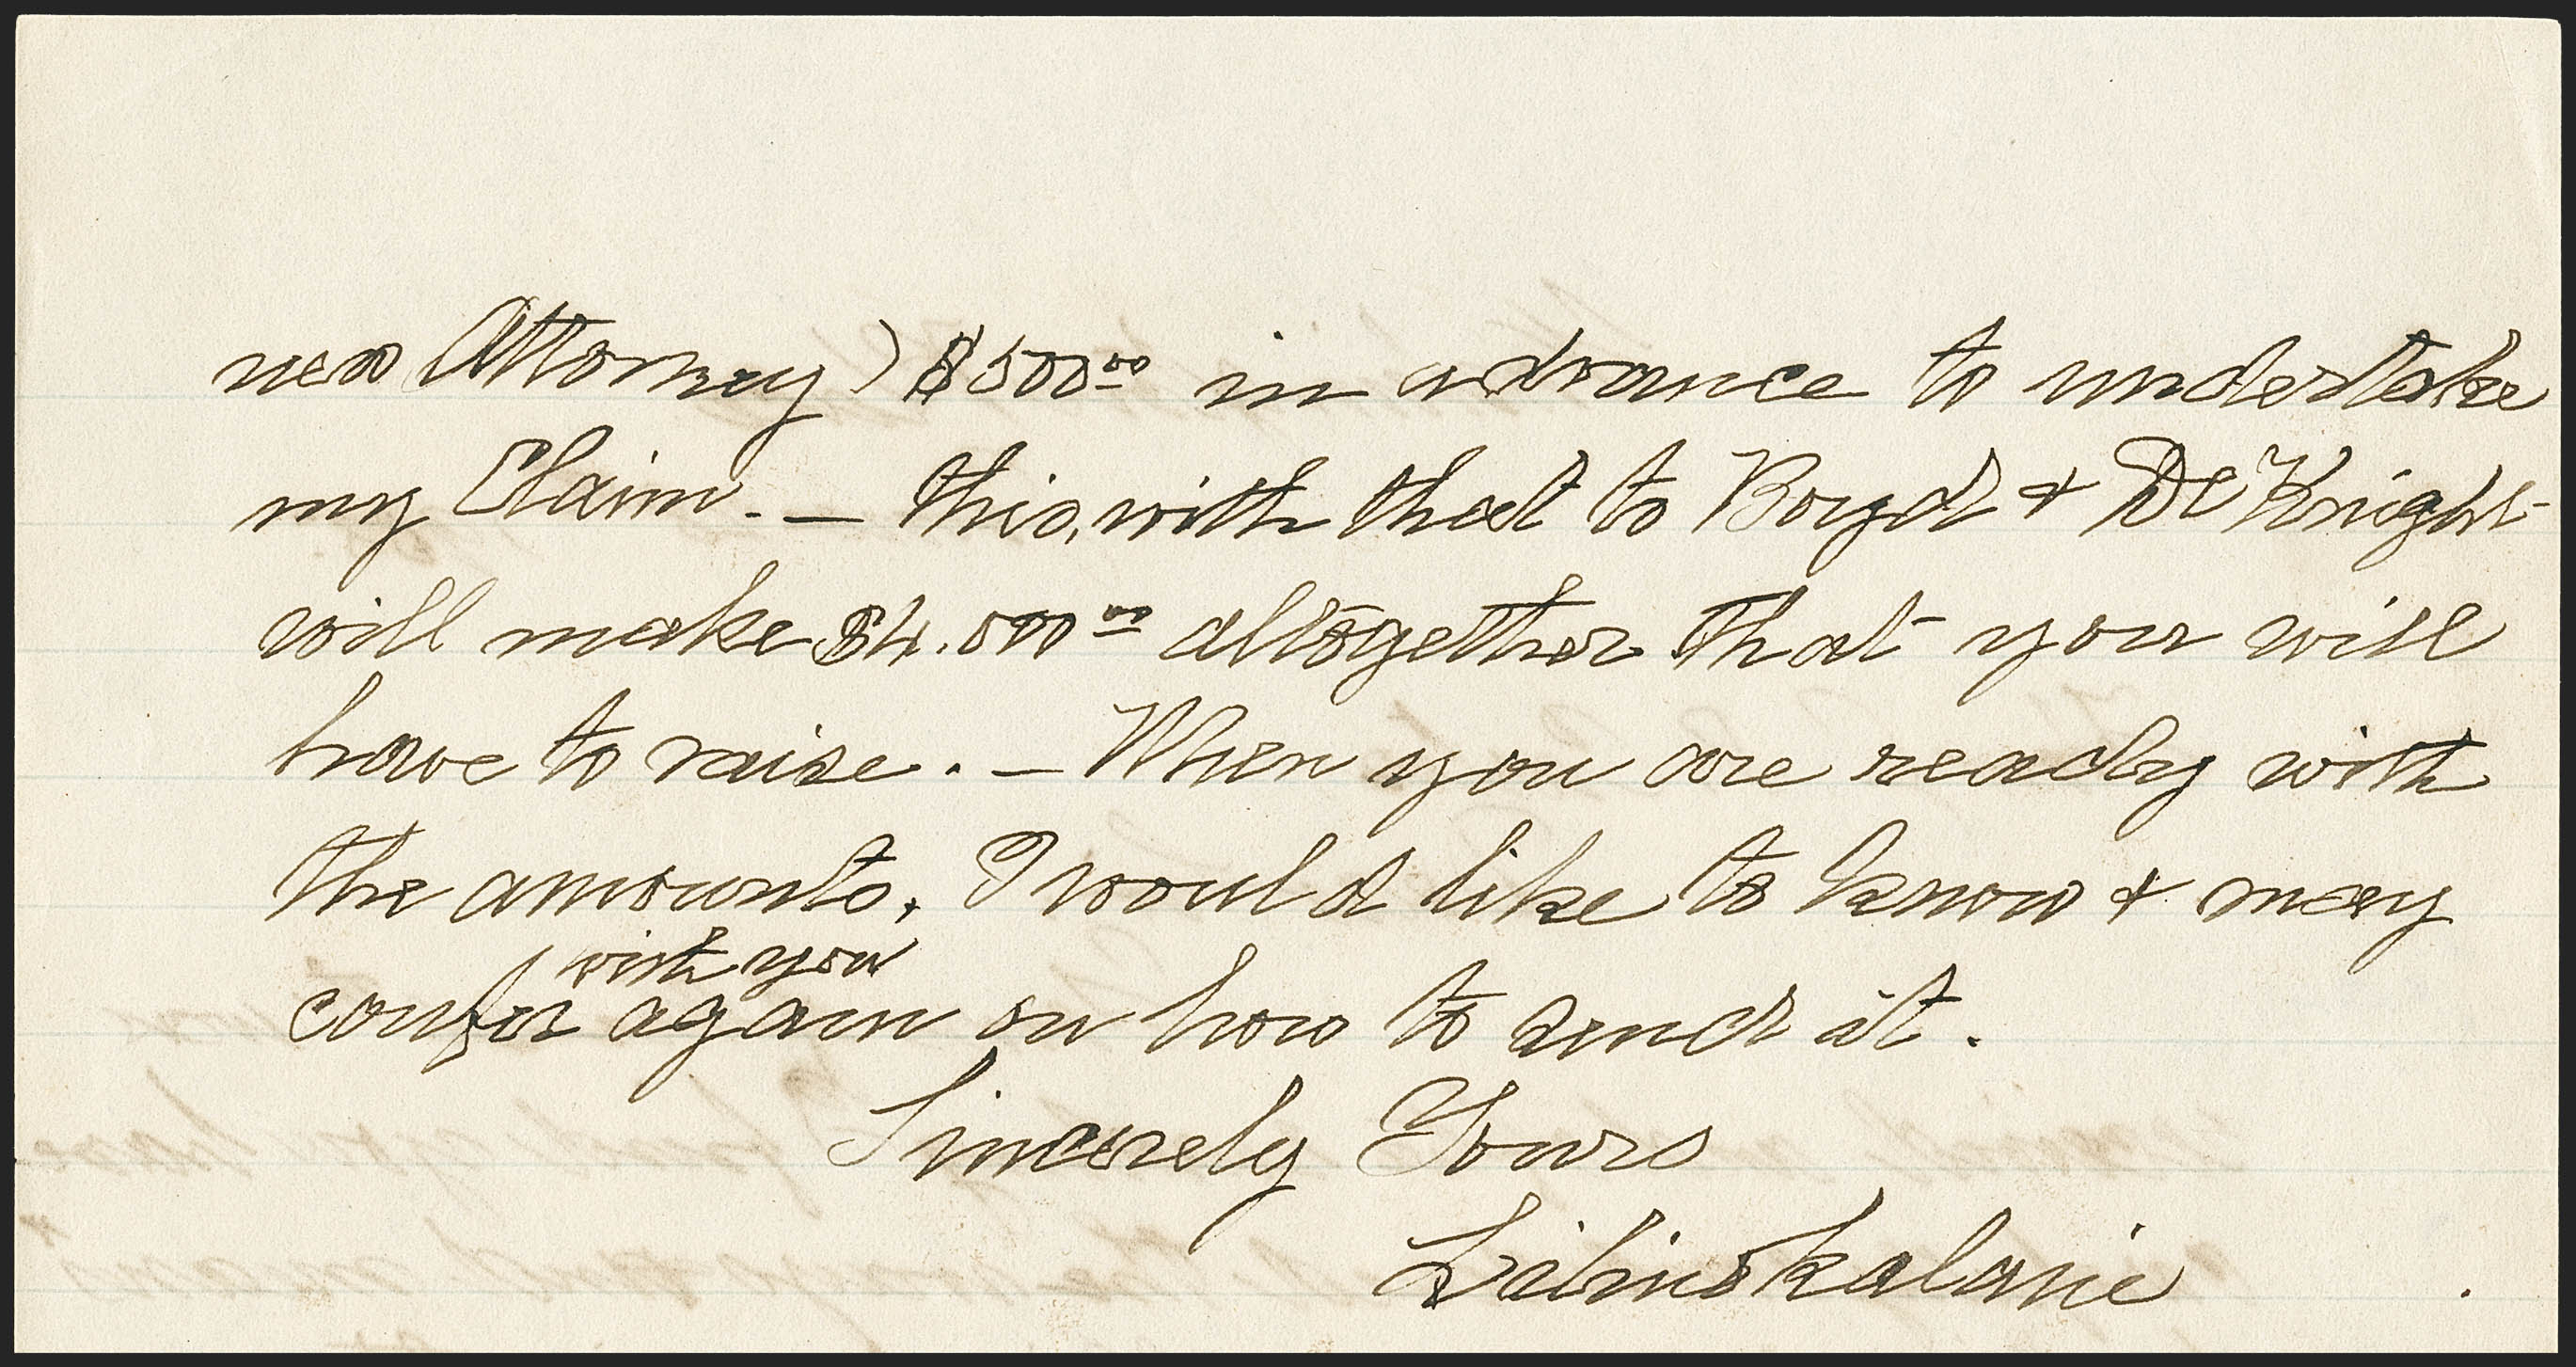 new Attorney) $500.00 in advance to undertake
my Claim. — this, with that to Boyd & De Knight
will make $4.500.00 altogether that you will
have to raise. — When you are ready with
the amounts, I would like to know & may
with you
confer again on how to send it.
Sincerely Yours
Liliuokalani